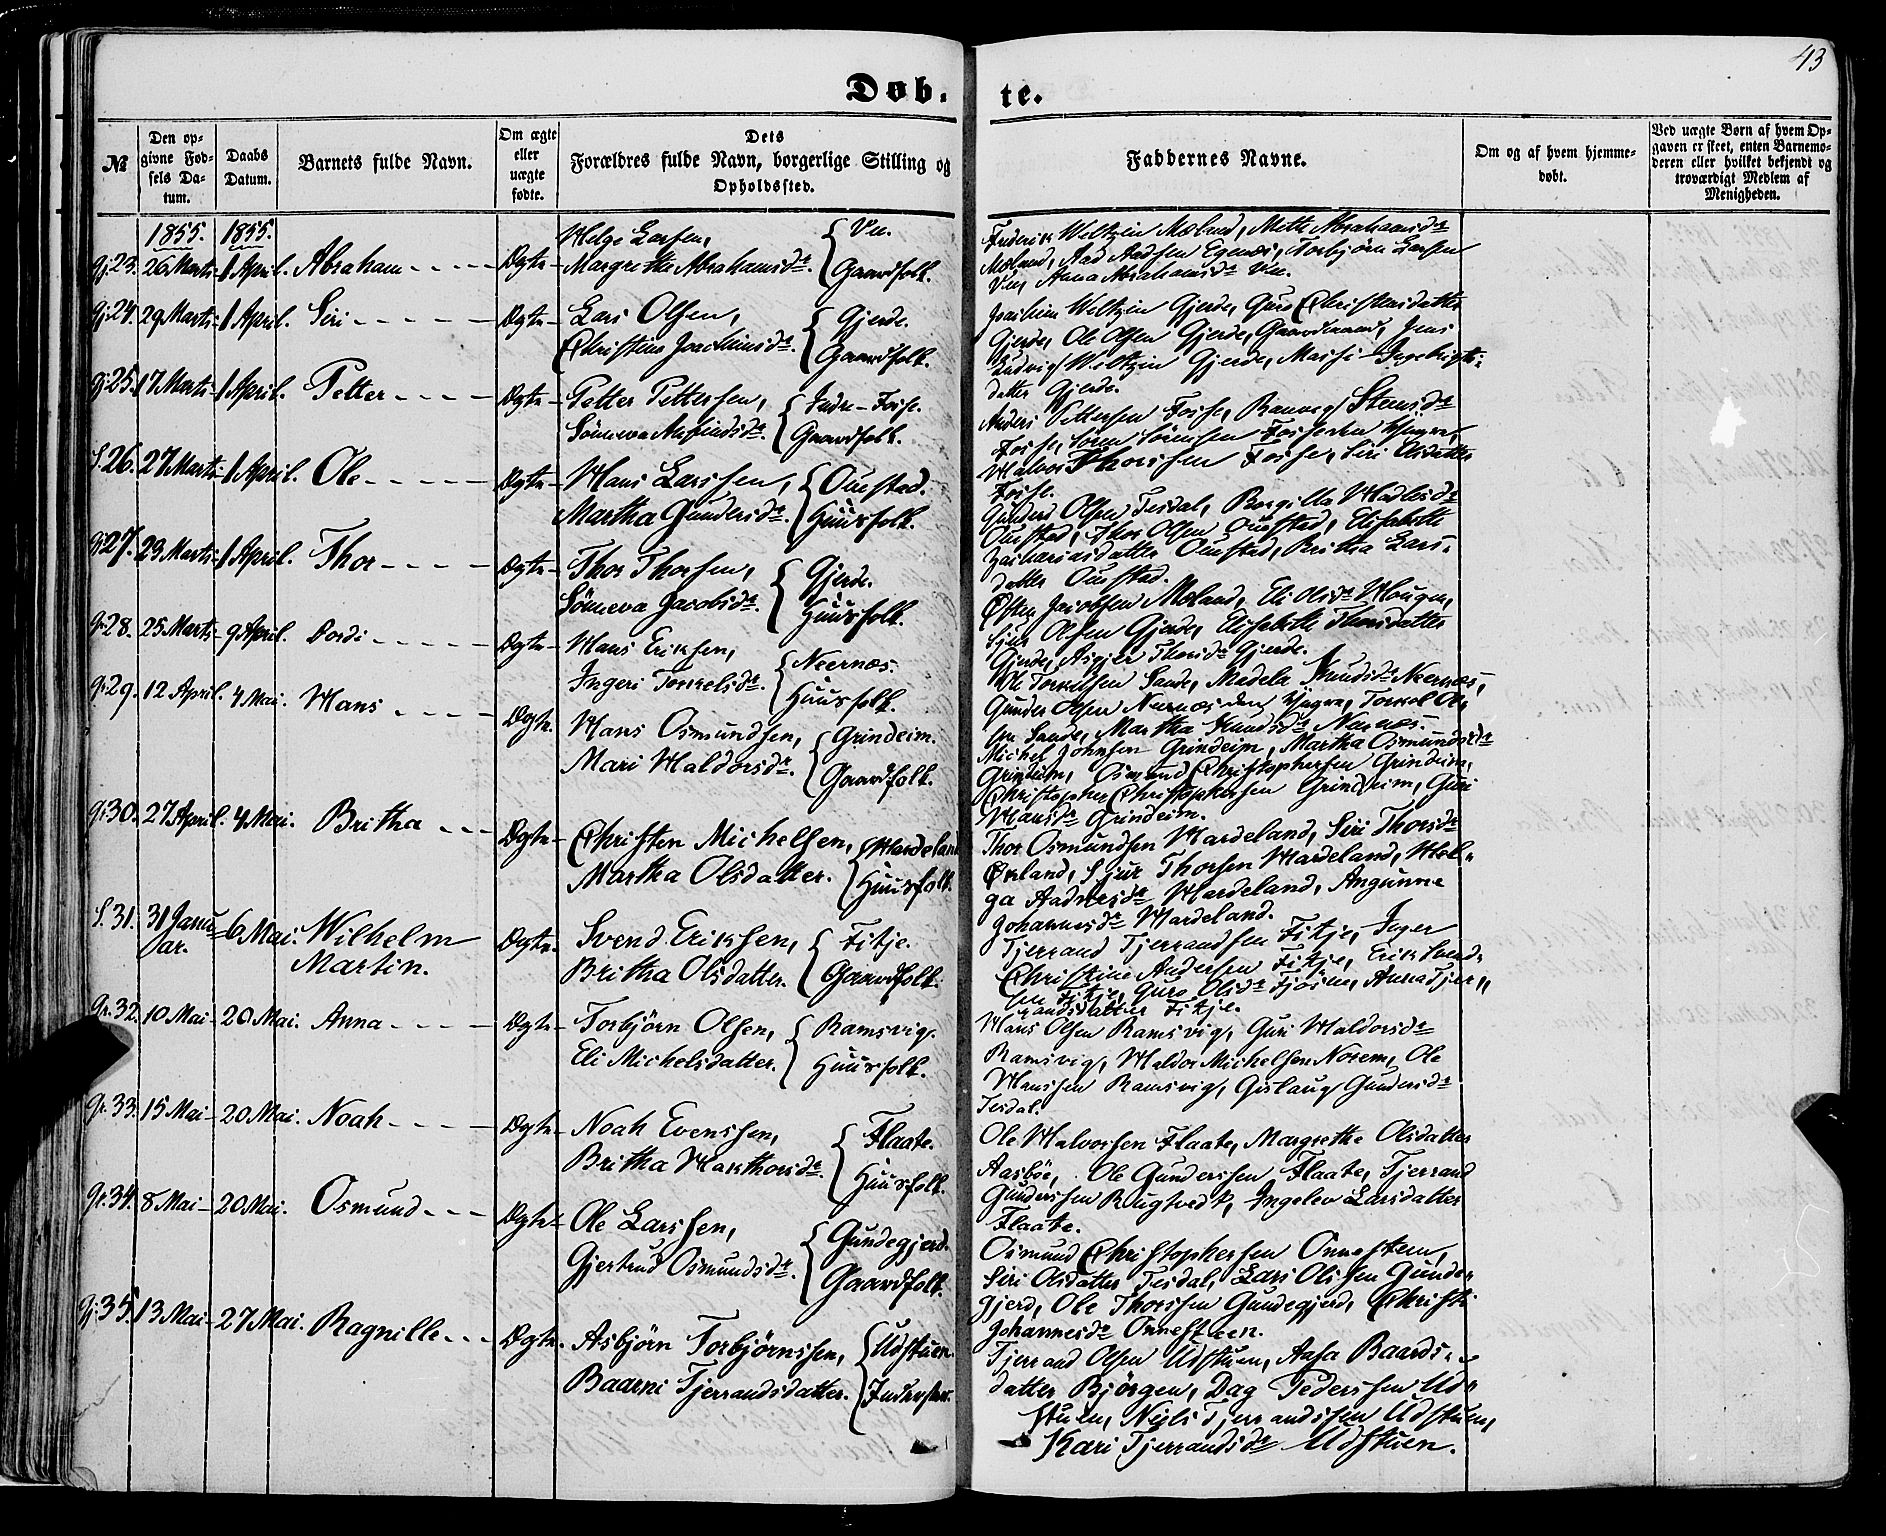 43
Døb.
te.
№
Den op-
givne Fød-
sels Da-
tum.
Daabs
Datum.
Barnets fulde Navn.
Om ægte
eller
uægte
fødte.
Dets
Forældres fulde Navn, borgerlige Stilling og
Opholdssted.
Faddernes Navne.
Om og af hvem hjemme-
døbt.
Ved uægte Børn af hvem Op-
gaven er skeet, enten Barnemo-
deren eller hvilket bekjendt og
troværdigt Medlem af
Menigheden.
1855. 1855.
23. 26 Marts 1 April. Abraham Ægte
Helge Larsen,
Margrethe Abrahamsdr.
Gaardfolk.
Frederik Weltzin Mæland, Mette Abrahamsdr
Mæland, Aad Aadsen Egenæs, Torbjørn Larsen
Vee, Anna Abrahamsdr Vee.
24. 29 Marts 1 April. Siri Ægte
Lars Olsen, Gjerde.
Christine Joachimsdr. Gaardfolk.
Joachim Weltzin Gjerde, Guro Christensdatter
Gjerde, Ole Olsen Gjerde, Gaardmænd, Jens
Ludvig Weltzin Gjerde, Massi Ingebrigts-
datter Gjerde.
25. 17 Marts 1 April. Petter Ægte
Petter Pettersen, Indre-Fosse.
Sønneva Gaardfolk.
Anders Pettersen Fosse, Ranveg Steensdr
Fosse, Søren Sørensen Fosse den Yngre,
Halvor Thorssen Fosse, Siri Olsdatter
Fosse.
26. 27 Marts 1 April. Ole Ægte
Hans Larssen, Ouestad.
Martha Gundersdr. Huusfolk.
Gunders Olsen Tesdal, Borgilla Hadlesdr
Ouestad, Thor Olsen Ouestad, Elisabeth
Zachariasdatter Ouestad, Britha Lars-
datter Ouestad.
27. 23 Marts 1 April. Thor Ægte
Thor Thorsen, Gjerde.
Sønneva Jacobsdr. Huusfolk.
Østen Jacobsen Mæland, Eli Olsdr Hougen,
Sjur Olsen Gjerde, Elisabeth Thorsdatter
Gjerde, Asgjer Thorsdr Gjerde.
28. 25 Marts 9 April. Dordi Ægte
Hans Eriksen, Neernæs.
Ingeri Torkelsdr. Huusfolk.
Ole Torkelsen Sande, Madela Knudsdr Neernæs,
Gunder Olsen Neernæs den Yngre, Torkel Ol-
sen Sande, Martha Knudsdr Neernæs.
29. 12 April. 4 Mai. Hans Ægte.
Hans Osmundsen, Grindeim.
Mari Haldorsdr. Gaardfolk.
Michel Johnsen Grindeim, Martha Osmundsdr
Grindeim, Osmund Christophersen Grindeim,
Christopher Christophersen Grindeim, Guri
Hansdr Grindeim.
30. 27 April. 4 Mai. Britha Ægte
Christen Michelsen, Hardeland
Martha Olsdatter. Huusfolk.
Thor Osmundsen Hardeland, Siri Thorsdr
Ørland, Sjur Thorsen Hardeland, Hel-
ga Aadnesdr Hardeland, Angunne
Johannesdr Hardeland.
31. 31 Janu-
ar. 6 Mai. Wilhelm
Martin. Ægte.
Svend Eriksen, Fitje.
Britha Olsdatter. Gaardfolk.
Tjerrand Tjerrandsen Fitje, Inger
Christine Andersen Fitje, Erik Svend-
sen Fitje, Guro Olsdr Fjøsne, Anna Tjer-
randsdatter Fitje.
32. 10 Mai 20 Mai. Anna Ægte
Torbjørn Olsen, Ramsvig.
Eli Michelsdatter. Huusfolk.
Hans Olsen Ramsvig, Guri Haldorsdr
Ramsvig, Haldor Michelsen Norem, Ole
Hanssen Ramsvig, Gislaug Gundersdr
Tesdal.
33. 15 Mai 20 Mai. Noah Ægte
Noah Evenssen, Flaate.
Britha Hakthorsdr. Huusfolk.
Ole Halvorsen Flaate, Margrethe Olsdatter
Aasbøe, Ole Gunderssen Flaate, Tjerrand
Gunderssen Rugtvedt, Ingelev Larsdatter
Flaate.
34. 8 Mai 20 Mai. Osmund Ægte
Ole Larssen, Gundegjerd.
Gjertrud Osmundsdr. Gaardfolk.
Osmund Christophersen Onnesteen,
Siri Olsdatter Tesdal, Lars Olssen Gunde-
gjerd, Ole Thorssen Gundegjerd, Christi
Johannesdr Onnesteen.
35. 13 Mai 27 Mai. Ragnille Ægte.
Asbjørn Torbjørnssen, Udstuen.
Baarni Tjerrandsdatter.
Tjerrand Olsen Udstuen, Aasa Baards-
datter Bjørgen, Dag Pederssen Ud-
stuen, Niels Tjerrandssen Udstuen,
Kari Tjerrandsdr Udstuen.